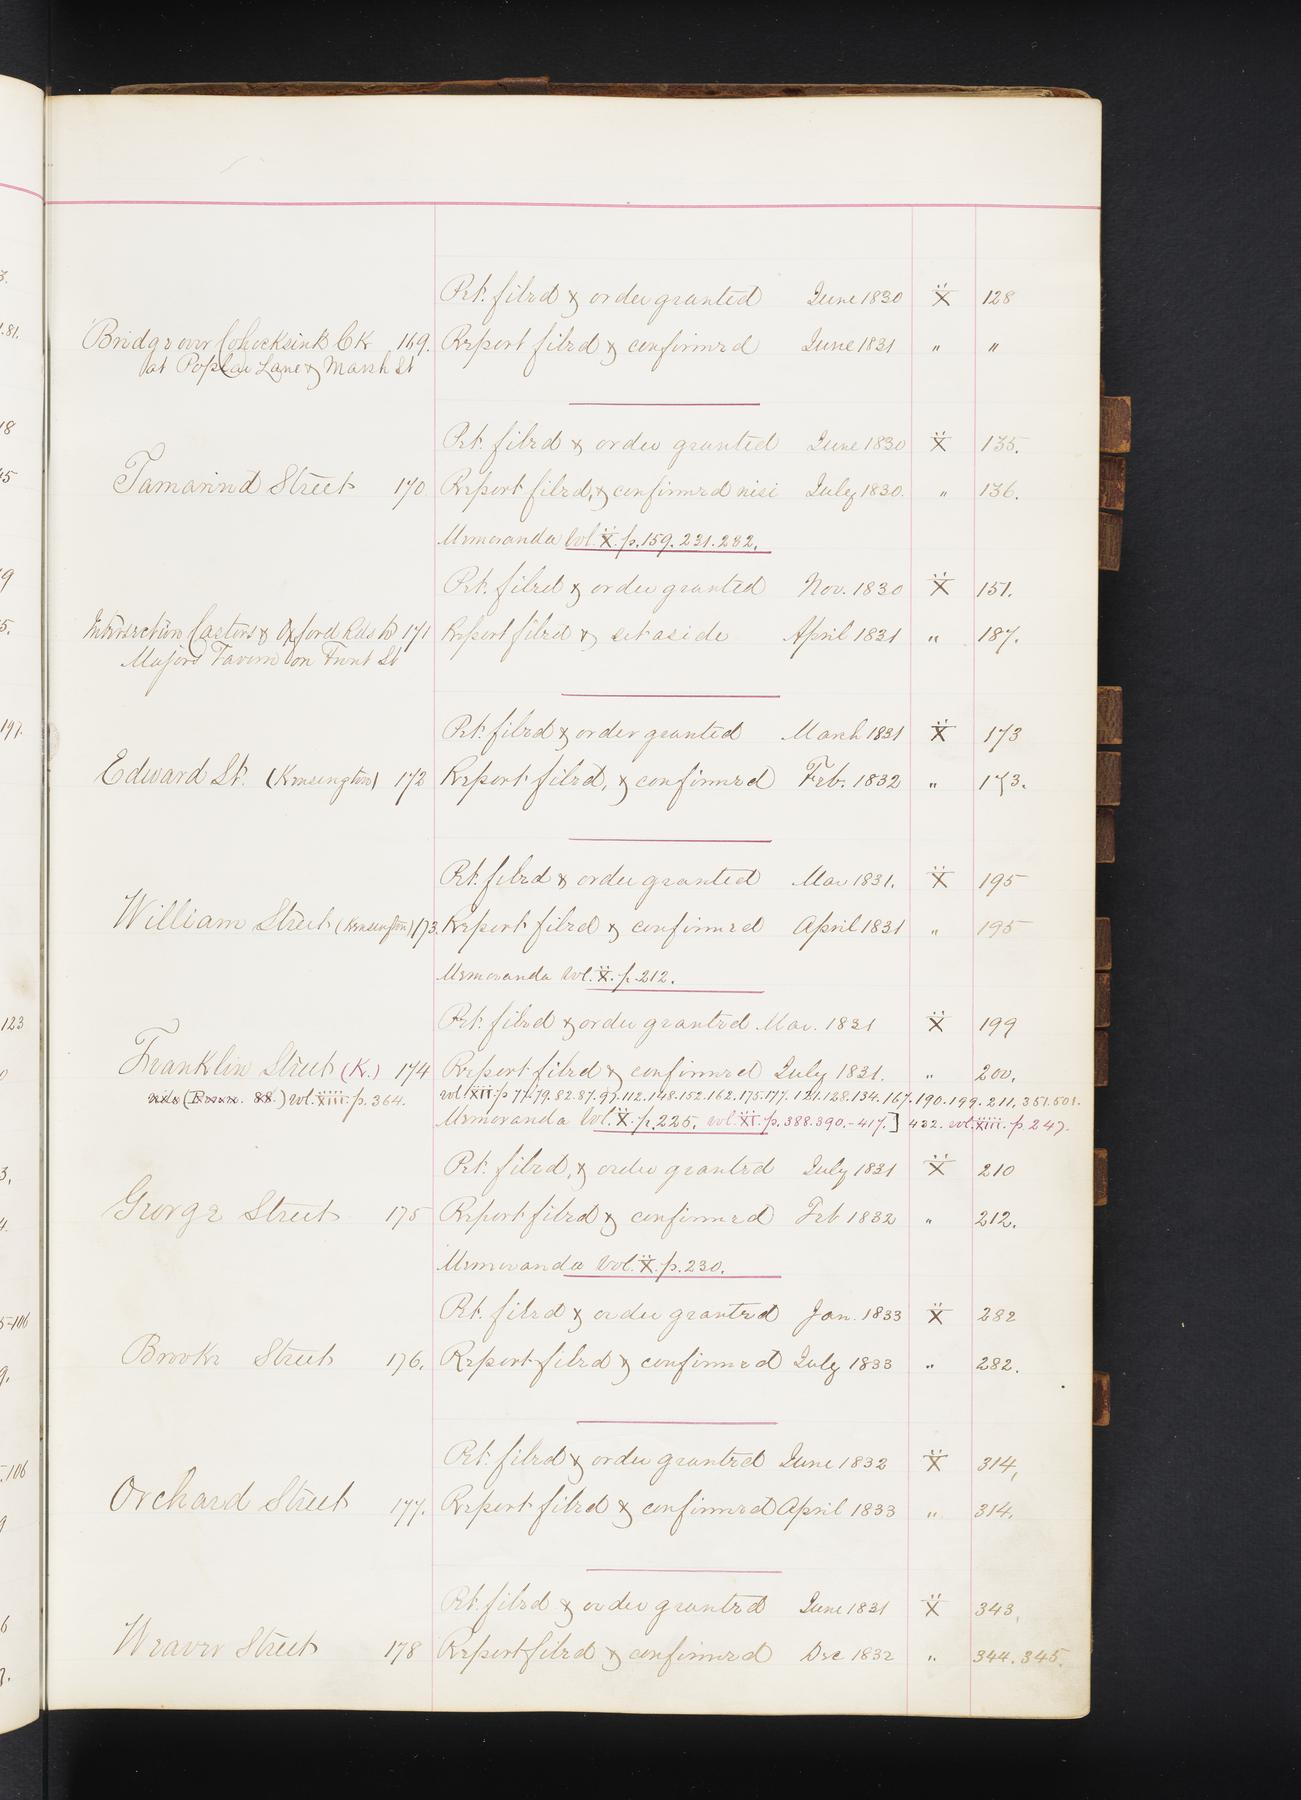 Pet. filed & order granted June 1830 X 128
Bridge over Cohocksink Ck 169. Report filed & confirmed June 1831 " "
at Poplar Lane & Marsh St
Pet. filed & order granted June 1830 X 135.
Tamarind Street 170 Report filed, & confirmed nisi July 1830. " 136.
Memoranda Vol. X. p. 159. 231. 282.
Pet. filed & order granted Nov. 1830 X 151.
Intersection Castors & Oxford Rds to 171 Report filed & set aside April 1831 " 187.
Majors Tavern on Front St
Pet. filed & order granted March 1831 X 173
Edward St. (Kensington) 172 Report filed, & confirmed Feb. 1832 " 173.
Pet. filed & order granted Mar 1831. X 195
William Street (Kensington) 173. Report filed & confirmed April 1831 " 195
Memoranda Vol. X. p. 212.
Pet. filed & order granted Mar. 1831 X 199
Franklin Street (K.) 174 Report filed & confirmed July 1831. " 200.
vol. XIII. p. 364. vol XII. p 77.79.82.87.97.112.148.152.162.175.177. 121.128.134.167.190.199.211.351.501.
Memoranda Vol. X. p. 225. vol. XI. p. 388.390.-417.] 432. vol. XIII. p. 247.
Pet. filed, & order granted July 1831 X 210
George Street 175 Report filed & confirmed Feb 1832 " 212.
Memoranda Vol. X. p. 230.
Pet. filed & order granted Jan. 1833 X 282
Brooke Street 176. Report filed & confirmed July 1833 " 282.
Pet. filed & order granted June 1832 X 314,
Orchard Street 177. Report filed & confirmed April 1833 " 314.
Pet. filed & order granted June 1831 X 343,
Weaver Street 178 Report filed & confirmed Dec 1832 " 344. 345.